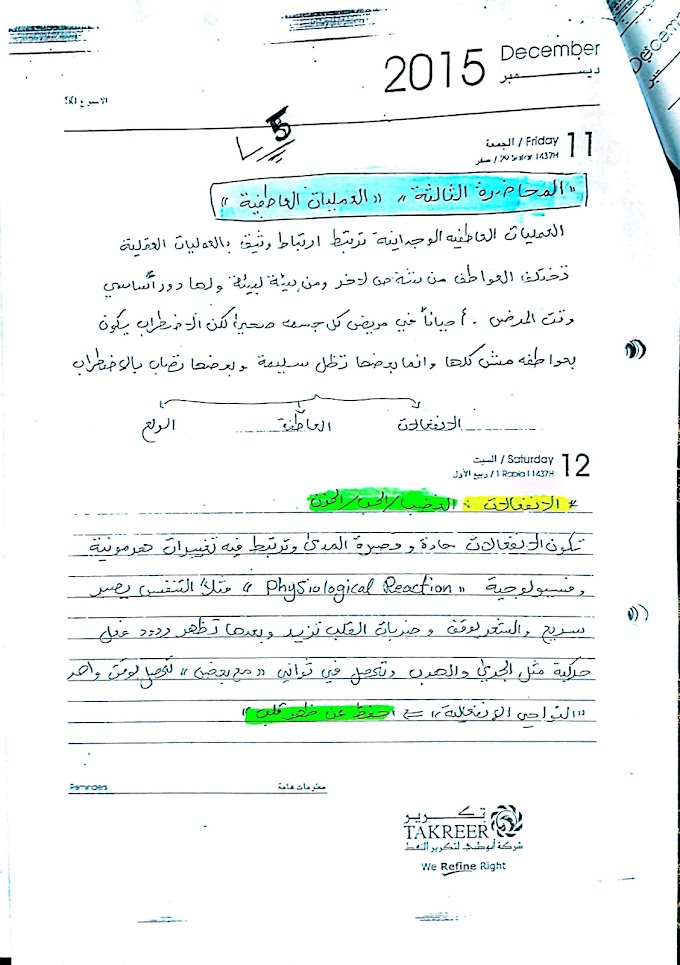 2015 December
ديسمبر
الاسبوع 50
5
11 Friday / الجمعة
29 Safar 1437H / صفر
"المحاضرة الثالثة" "العمليات العاطفية"
العمليات العاطفيه الوجدانية ترتبط ارتباط وثيق بالعمليات العقلية
تختلف العواطف من شخص لاخر ومن بيئة لبيئة ولها دور أساسي
وقت المرض . أحياناً في مريض كل جسمه صحيح لكن الاضطراب يكون
بعواطفه مش كلها وانما بعضها تظل سليمة وبعضها تصاب بالاضطراب
الانفعالات العاطفة الولع
12 Saturday / السبت
1 Rabia I 1437H / ربيع الأول
* الانفعالات : الغضب/الحب/الحزن
تكون الانفعالات حادة وقصيرة المدى وترتبط فيه تغييرات هرمونية
وفسيولوجية "Physiological Reaction" مثلاً التنفس يصير
سريع والشعر يوقف وضربات القلب تزيد وبعدها تظهر ردود فعل
حركية مثل الجري والهرب وتحصل في ثواني "مع بعض" تحصل بوقت واحد
"النواحي الانفعالية" احفظ عن ظهر قلب"
Reminders معلومات هامة
تكرير
TAKREER
شركة أبوظبي لتكرير النفط
We Refine Right